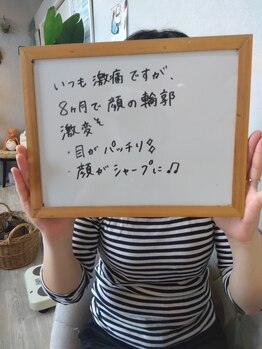 いつも激痛ですが、
8ヶ月で顔の輪郭
激変を
・目がパッチリ
・顔がシャープに♫